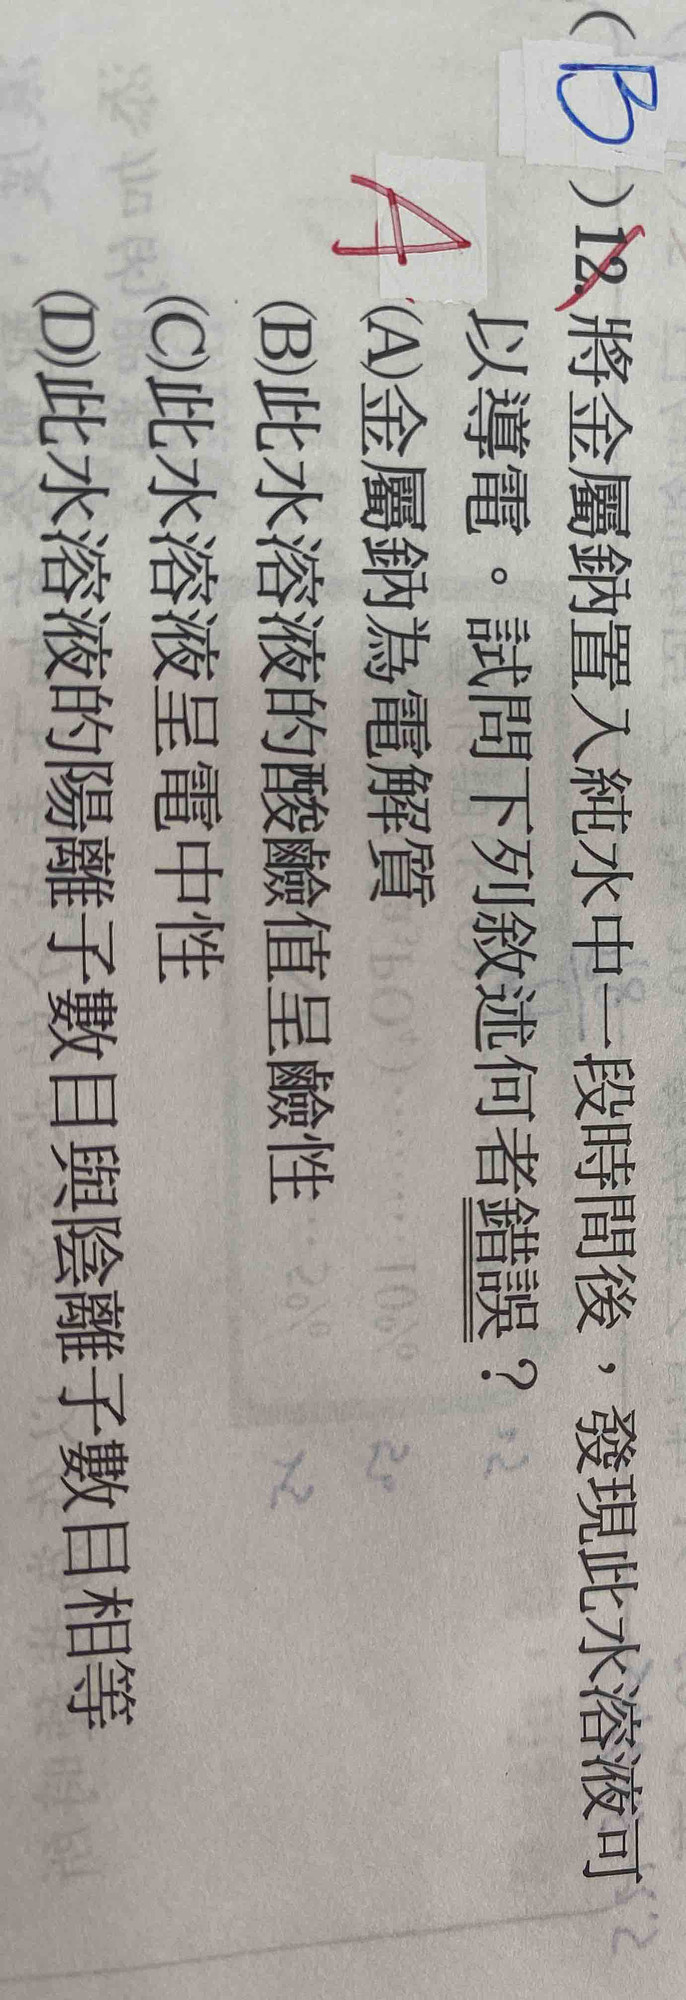 (B)12.將金屬鈉置入純水中一段時間後，發現此水溶液可
以導電。試問下列敘述何者錯誤？
A
(A)金屬鈉為電解質
(B)此水溶液的酸鹼值呈鹼性
(C)此水溶液呈電中性
(D)此水溶液的陽離子數目與陰離子數目相等